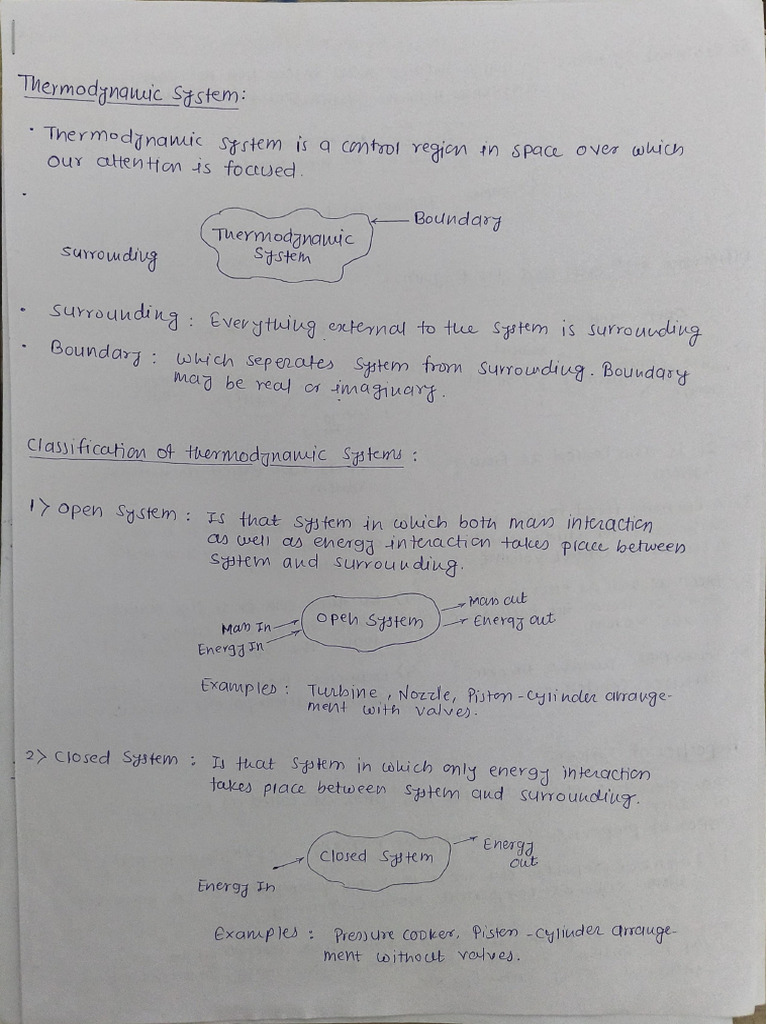 Thermodynamic System:
• Thermodynamic system is a control region in space over which
our attention is focused.
•
Boundary
Thermodynamic
System
surrounding
• Surrounding : Everything external to the system is surrounding
• Boundary : which seperates system from surrounding. Boundary
may be real or imaginary.
Classification of thermodynamic systems :
1> Open System : Is that system in which both mass interaction
as well as energy interaction takes place between
system and surrounding.
Mass In
Energy In
Open System
Mass out
Energy out
Examples : Turbine, Nozzle, Piston-cylinder arrange-
ment with valves.
2> Closed System : Is that system in which only energy interaction
takes place between system and surrounding.
Energy In
Closed System
Energy
out
Examples : Pressure cooker, Piston-cylinder arrange-
ment without valves.